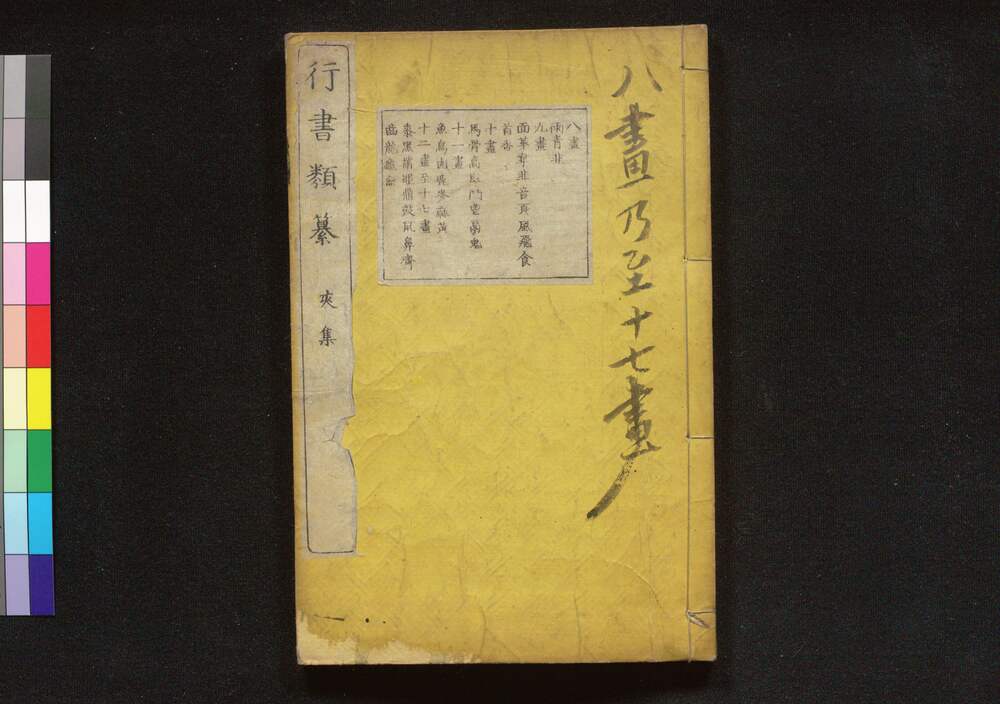 八畫乃至十七畫
八畫
雨青非
九畫
面革韋韭音頁風飛食
首香
十畫
馬骨高髟鬥鬯鬲鬼
十一畫
魚鳥鹵鹿麥麻黃
十二畫至十七畫
黍黑黹黽鼎鼓鼠鼻齊
齒龍龜龠
行書類纂
夾集